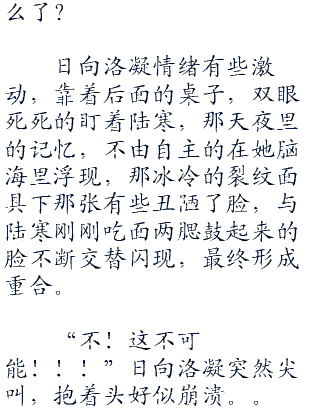 么了？
日向洛凝情绪有些激
动，靠着后面的桌子，双眼
死死的盯着陆寒，那天夜里
的记忆，不由自主的在她脑
海里浮现，那冰冷的裂纹面
具下那张有些丑陋了脸，与
陆寒刚刚吃面两腮鼓起来的
脸不断交替闪现，最终形成
重合。
“不！这不可
能！！！”日向洛凝突然尖
叫，抱着头好似崩溃。。